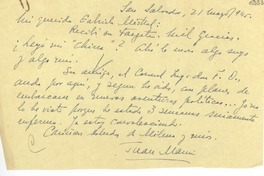 San Salvador, 21 mayo, 945.
Mi querida Gabriela Mistral:
Recibí su tarjeta. Mil gracias.
¿Leyó mi "Chico"? Ahí le mando algo suyo
y algo mío.
Su amigo, el Consul
anda por aquí, y según he oído, con planes de
embarcarse en nuevas aventuras políticas... Yo no
lo he visto porque he estado 3 semanas seriamente
enfermo. Ya estoy convalesciendo.
Cariñosos saludos de Melina y míos.
Juan